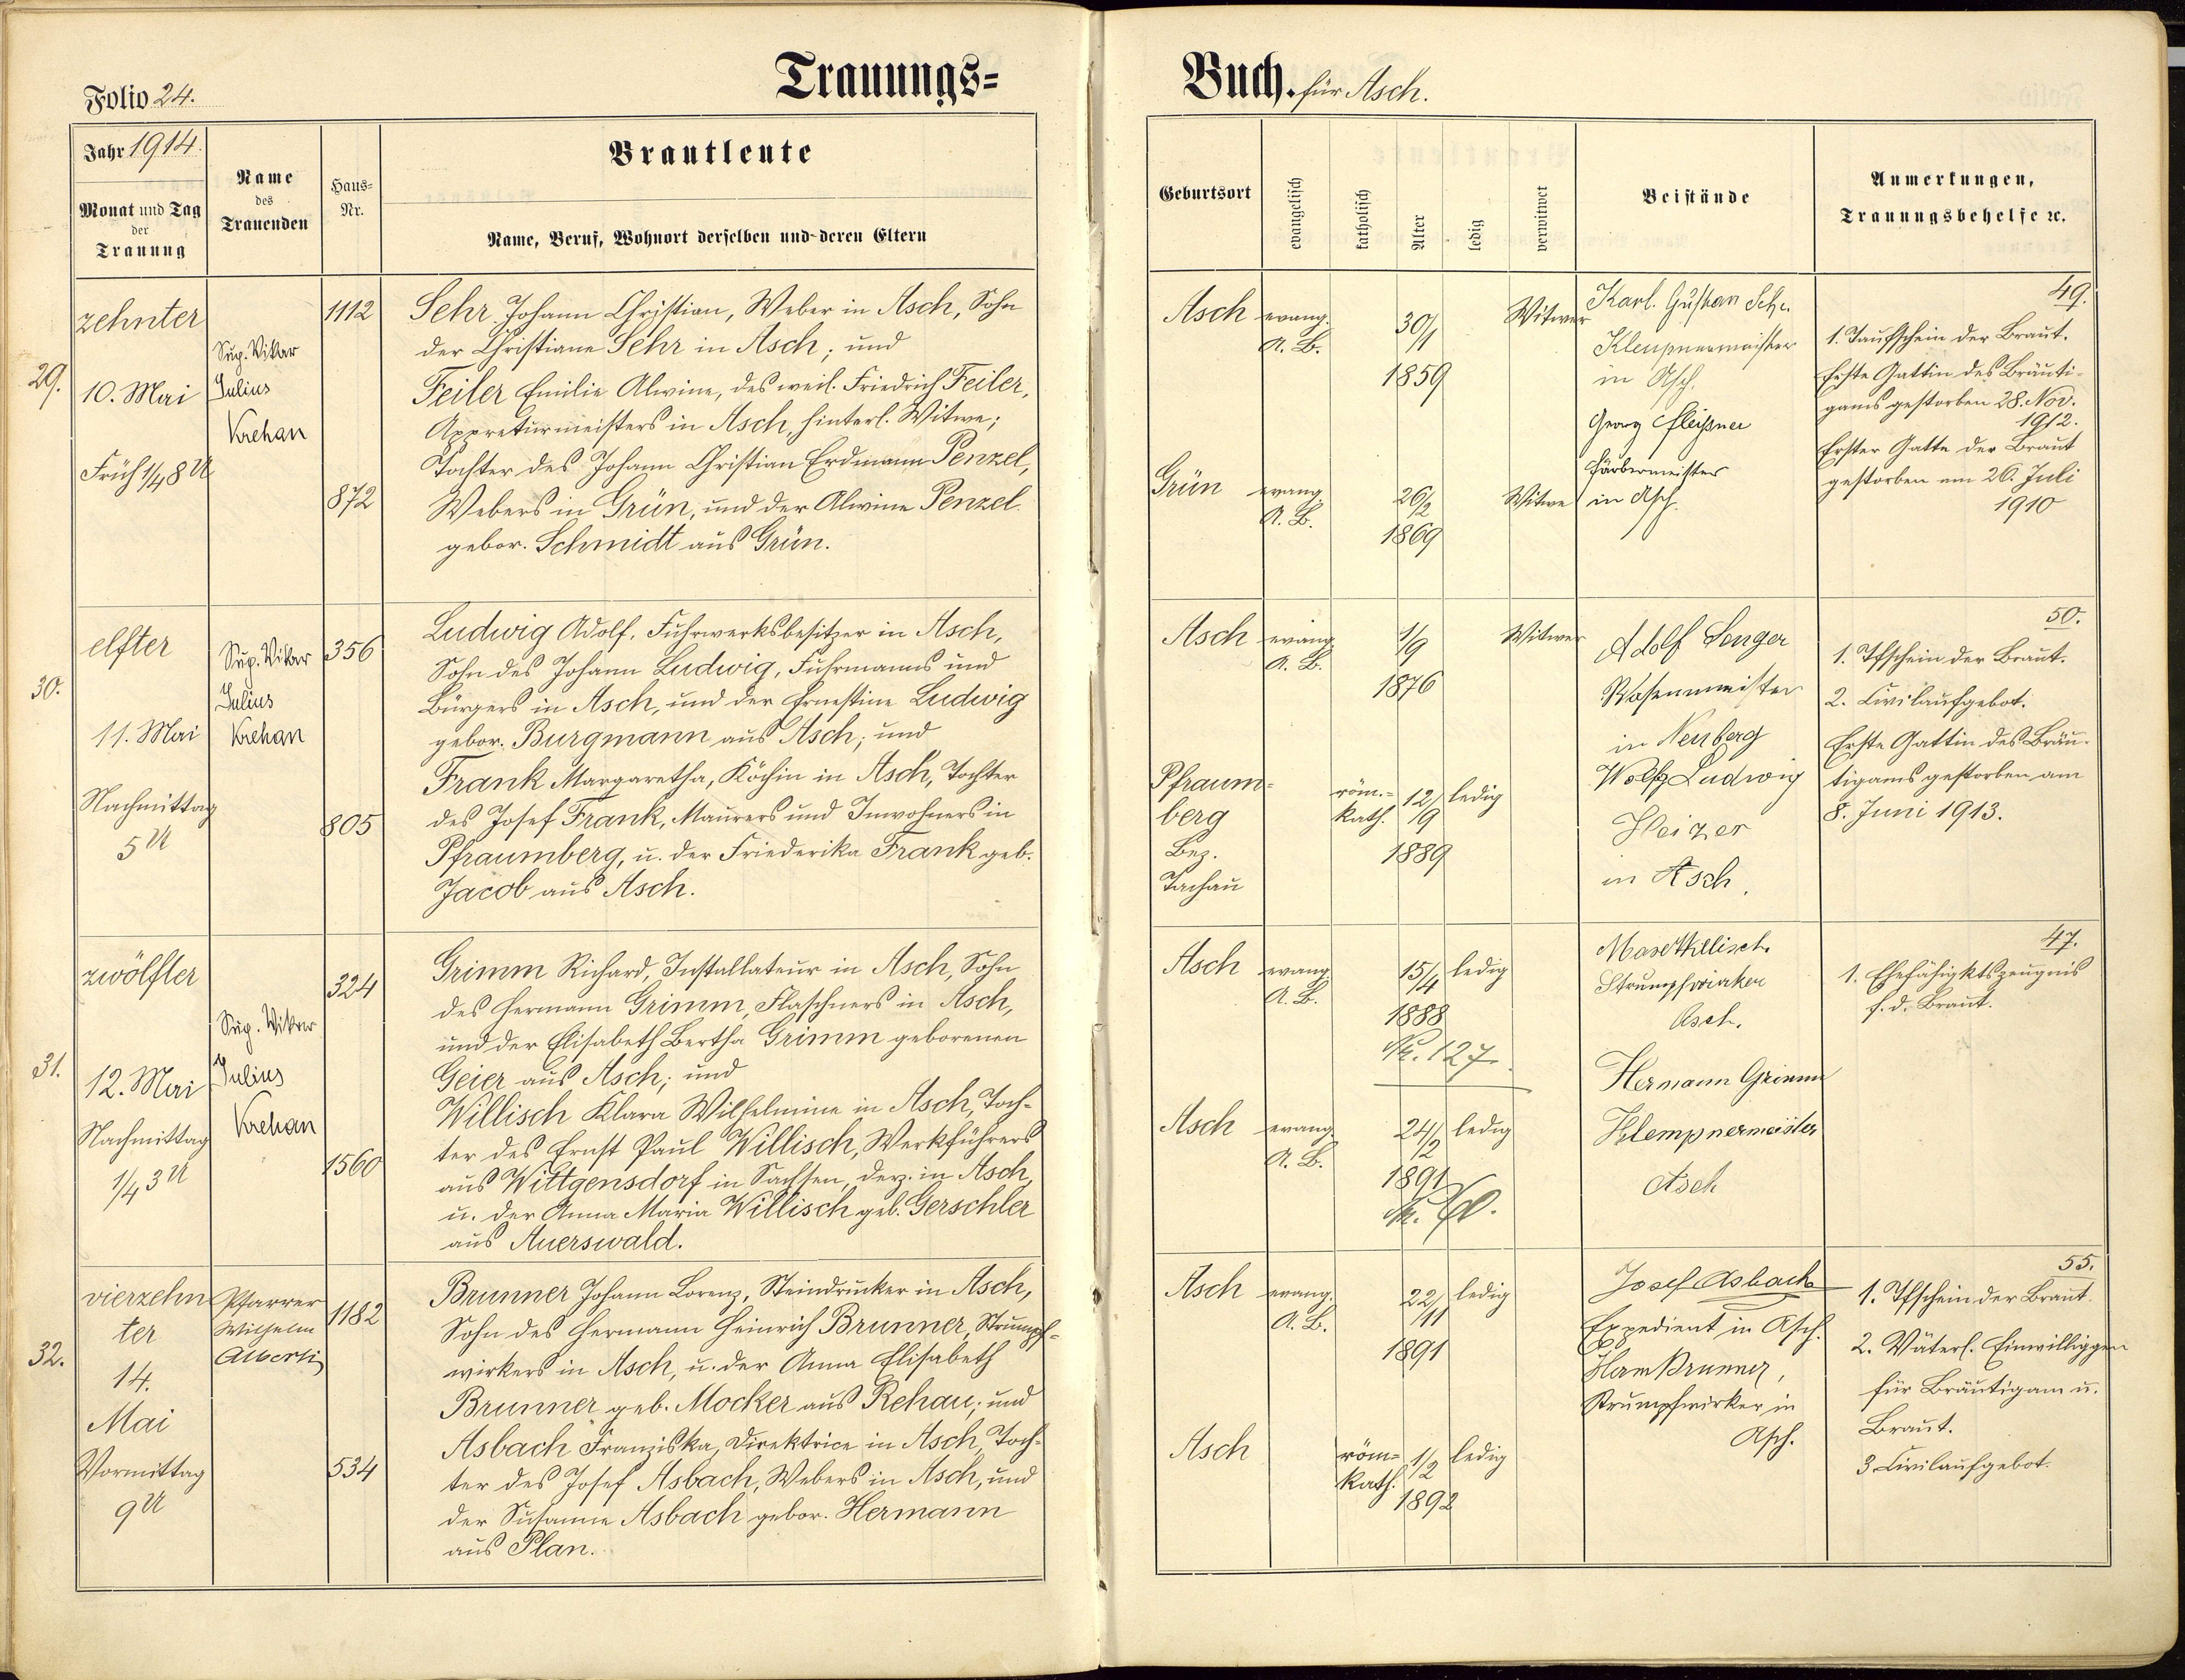 Folio 24.
Trauungs=
Buch. für Asch.
Jahr 1914.
Monat und Tag
der
Trauung
Name
des
Trauenden
Haus=
Nr.
Brautleute
Name, Beruf, Wohnort derselben und deren Eltern
Geburtsort
evangelisch
katholisch
Alter
ledig
verwitwet
Beistände
Anmerkungen,
Trauungsbehelfe ꝛc.
29.
zehnter
10. Mai
Früh 1/4 8 U
Sup. Vikar
Julius
Krehan
1112
872
Sehr Johann Christian, Weber in Asch, Sohn
der Christiane Sehr in Asch; und
Feiler Emilie Alwine, des weil. Friedrich Feiler,
Appreturmeisters in Asch, hinterl. Witwe;
Tochter des Johann Christian Erdmann Penzel,
Webers in Grün, und der Alwine Penzel
gebor. Schmidt aus Grün.
Asch
evang.
A. B.
30/1
1859
Witwer
Grün
evang.
A. B.
26/2
1869
Witwe
Karl. Gustav Sehr
Klempnermeister
in Asch.
Georg Fleißner
Färbermeister
in Asch.
49.
1. Taufschein der Braut.
Erste Gattin des Bräuti-
gams gestorben 28. Nov.
1912.
Erster Gatte der Braut
gestorben am 26. Juli
1910
30.
elfter
11. Mai
Nachmittag
5 U
Sup. Vikar
Julius
Krehan
356
805
Ludwig Adolf, Fuhrwerksbesitzer in Asch,
Sohn des Johann Ludwig, Fuhrmanns und
Bürgers in Asch, und der Ernestine Ludwig
gebor. Burgmann aus Asch; und
Frank Margaretha, Köchin in Asch, Tochter
des Josef Frank, Maurers und Inwohners in
Pfraumberg, u. der Friederika Frank geb.
Jacob aus Asch.
Asch
evang.
A. B.
1/9
1876
Witwer
Pfraum-
berg
Bez.
Tachau
röm.=
kath.
12/9
1889
ledig
Adolf Senger
Wasenmeister
in Neuberg
Wolfg Ludwig
Heizer
in Asch.
50.
1. Tfschein der Braut.
2. Civilaufgebot.
Erste Gattin des Bräu-
tigams gestorben am
8. Juni 1913.
31.
zwölfter
12. Mai
Nachmittag
1/4 3 U
Sup. Vikar
Julius
Krehan
324
1560
Grimm Richard, Installateur in Asch, Sohn
des Hermann Grimm, Flaschners in Asch,
und der Elisabeth Bertha Grimm geborenen
Geier aus Asch; und
Willisch Klara Wilhelmine in Asch, Toch-
ter des Ernst Paul Willisch, Werkführers
aus Wittgensdorf in Sachsen, derz. in Asch,
u. der Anna Maria Willisch geb. Gerschler
aus Auerswald.
Asch
evang.
A. B.
15/4
1888
Nr. 127.
ledig
Asch
evang.
A. B.
24/2
1891
ledig
Strumpfwirker
Asch.
Hermann Grimm
Klempnermeister
Asch
47.
1. Ehefähigktszeugnis
f. d. Braut.
32.
vierzehn
ter
14.
Mai
Vormittag
9 U
Pfarrer
Wilhelm
Alberti
1182
534
Brunner Johann Lorenz, Steindrucker in Asch,
Sohn des Hermann Heinrich Brunner, Strumpf-
wirkers in Asch, u. der Anna Elisabeth
Brunner geb. Mocker aus Rehau; und
Asbach Franziska, Direktrice in Asch, Toch-
ter des Josef Asbach, Webers in Asch, und
der Susanna Asbach gebor. Hermann
aus Plan.
Asch
evang.
A. B.
22/11
1891
ledig
Asch
röm=
kath.
1/2
1892
ledig
Josef Asbach
Expedient in Asch.
Herm Brunner,
Strumpfwirker in
Asch.
55.
1. Tfschein der Braut.
2. Väterl. Einwilliggen
für Bräutigam u.
Braut.
3 Civilaufgebot.